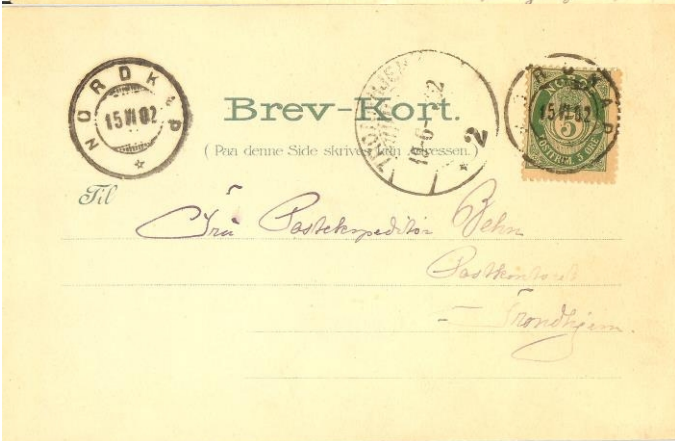 NORDKAP
15 VI 02
Brev-Kort.
(Paa denne Side skrives kun Adressen.)
TRONDHJEM
18-6 2
2
NORDKAP
15 VI 02
NORGE
5
POSTFRIM. 5 ØRE
Til
Frü Postekspeditör Behn
Postkontoret
Trondhjem.